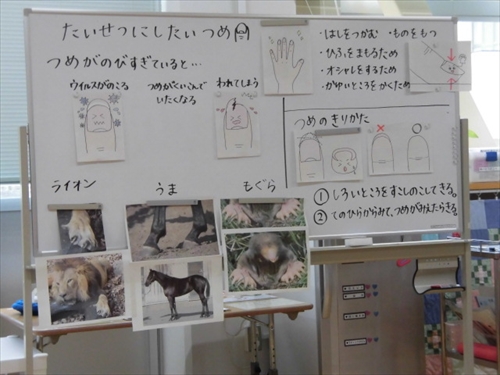 たいせつにしたいつめ
つめがのびすぎていると…
ウイルスがのこる
つめがくいこんで
いたくなる
われてしまう
・はしをつかむ ・ものをもつ
・ひふをまもるため
・オシャレをするため
・かゆいところをかくため
つめのきりかた
① しろいところをすこしのこしてきる。
② てのひらからみて、つめがみえたらきる。
ライオン
うま
もぐら